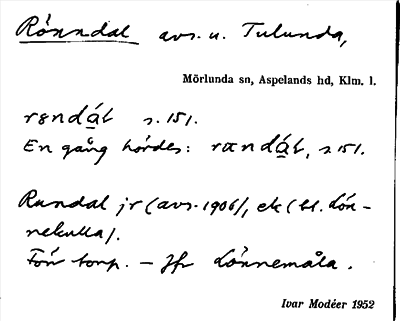 Rönndal avs. u. Tulunda,
Mörlunda sn, Aspelands hd, Klm. l.
rɵndál s. 151.
En gång hördes: rændál, s. 151.
Rundal jr (avs. 1906), ek (bl. Lön-
nekulla).
Förr torp. – Jfr Lönnemåla.
Ivar Modéer 1952